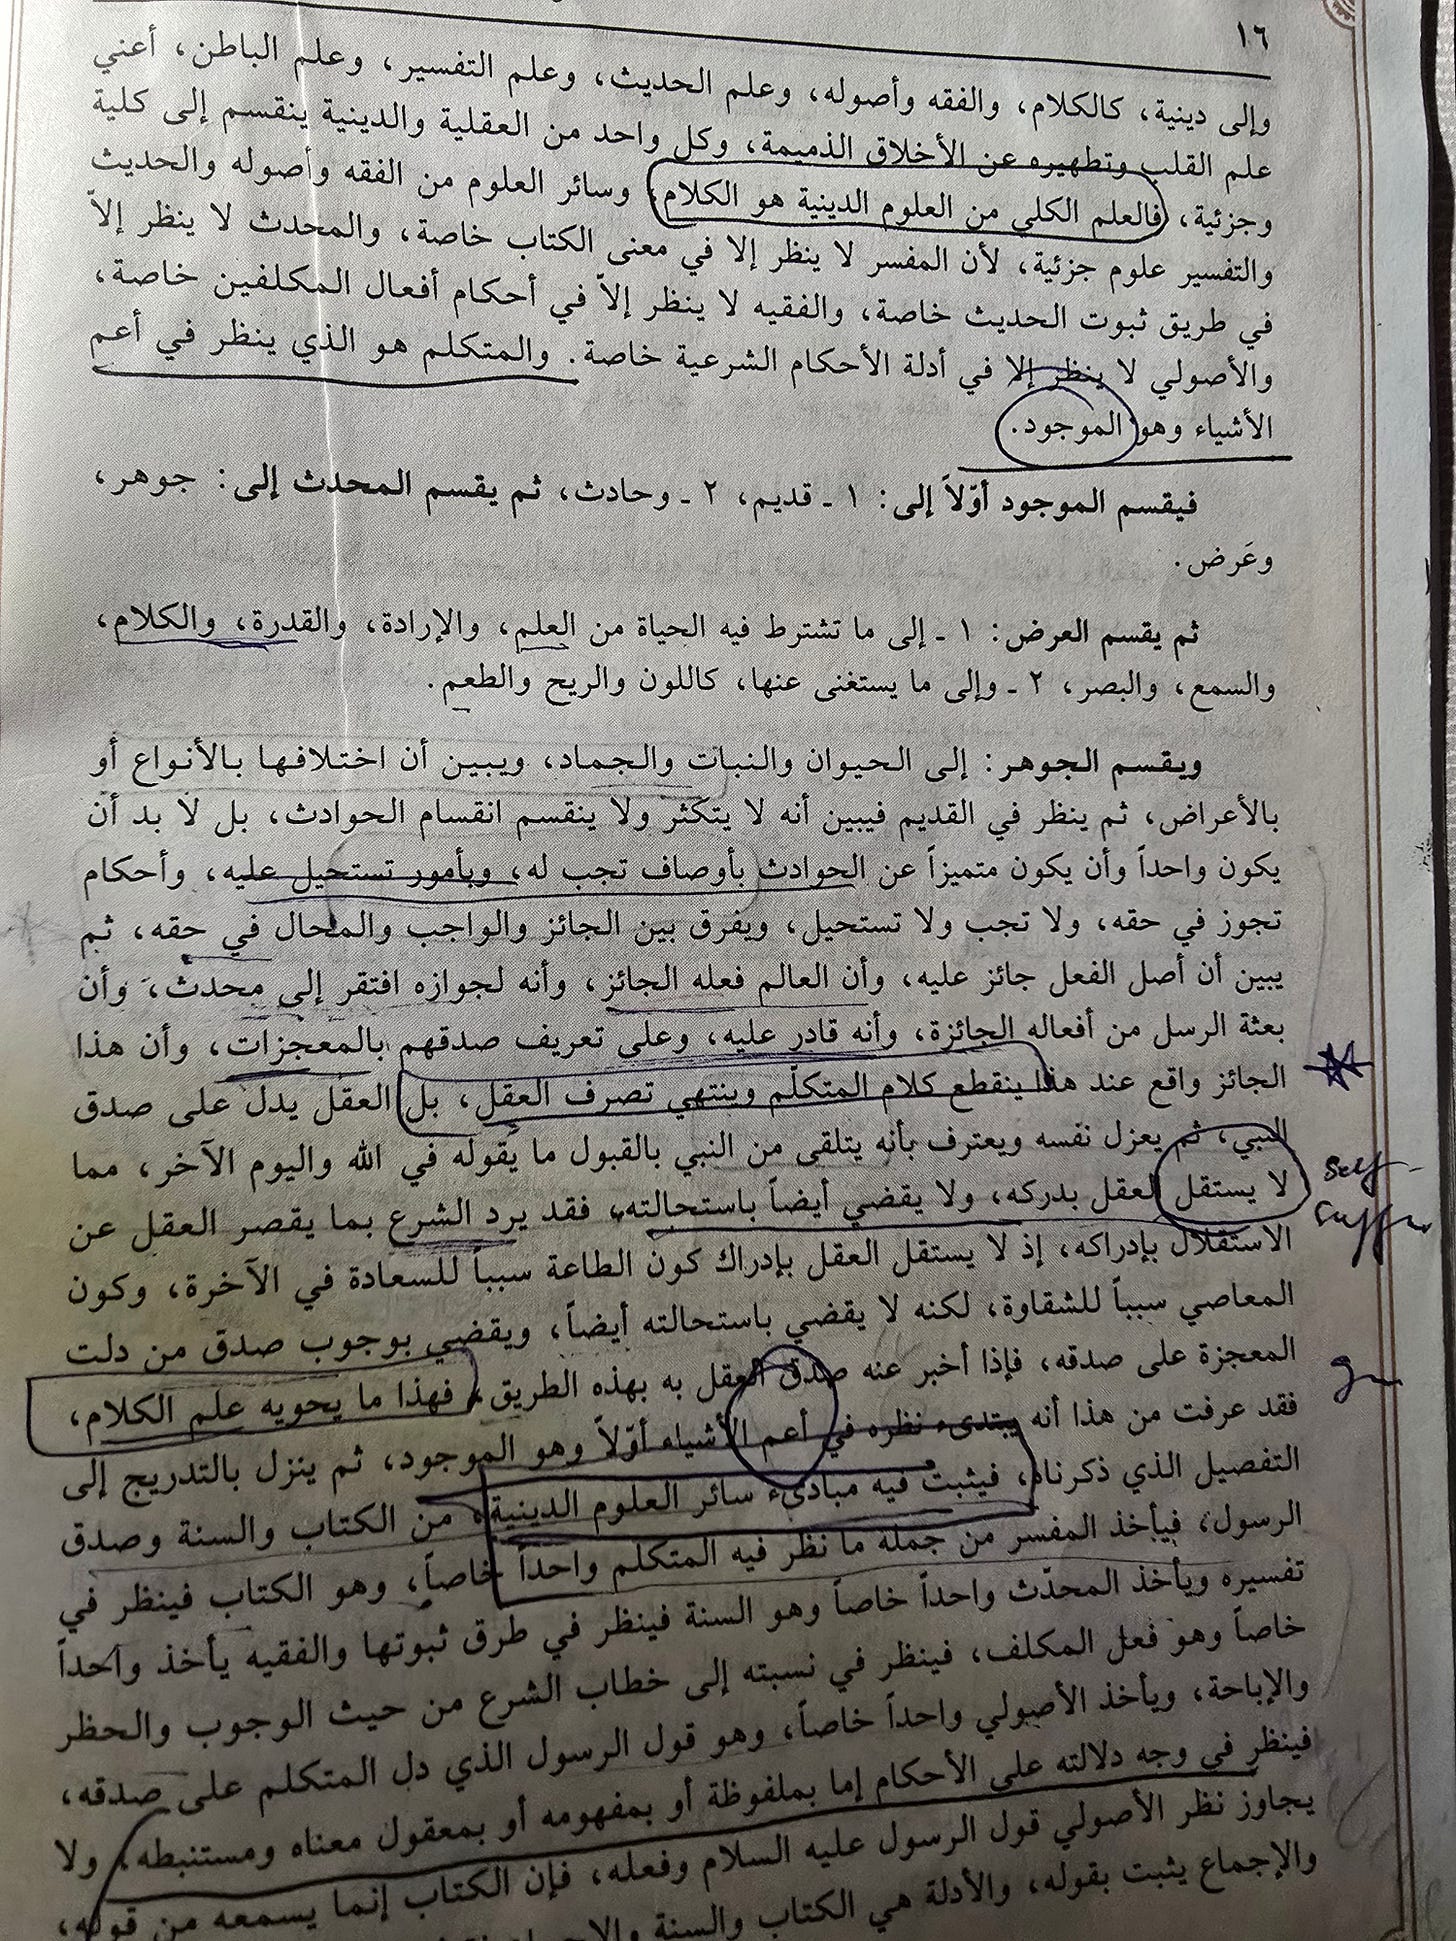 ١٦
وإلى دينية، كالكلام، والفقه وأصوله، وعلم الحديث، وعلم التفسير، وعلم الباطن، أعني
علم القلب وتطهيره عن الأخلاق الذميمة، وكل واحد من العقلية والدينية ينقسم إلى كلية
وجزئية، فالعلم الكلي من العلوم الدينية هو الكلام، وسائر العلوم من الفقه وأصوله والحديث
والتفسير علوم جزئية، لأن المفسر لا ينظر إلا في معنى الكتاب خاصة، والمحدث لا ينظر إلاّ
في طريق ثبوت الحديث خاصة، والفقيه لا ينظر إلاّ في أحكام أفعال المكلفين خاصة،
والأصولي لا ينظر إلا في أدلة الأحكام الشرعية خاصة. والمتكلم هو الذي ينظر في أعم
الأشياء وهو الموجود.
فيقسم الموجود أوّلاً إلى: ١ ـ قديم، ٢ ـ وحادث، ثم يقسم المحدث إلى: جوهر،
وعَرض.
ثم يقسم العرض: ١ ـ إلى ما تشترط فيه الحياة من العلم، والإرادة، والقدرة، والكلام،
والسمع، والبصر، ٢ ـ وإلى ما يستغنى عنها، كاللون والريح والطعم.
ويقسم الجوهر: إلى الحيوان والنبات والجماد، ويبين أن اختلافها بالأنواع أو
بالأعراض، ثم ينظر في القديم فيبين أنه لا يتكثر ولا ينقسم انقسام الحوادث، بل لا بد أن
يكون واحداً وأن يكون متميزاً عن الحوادث بأوصاف تجب له، وبأمور تستحيل عليه، وأحكام
تجوز في حقه، ولا تجب ولا تستحيل، ويفرق بين الجائز والواجب والمحال في حقه، ثم
يبين أن أصل الفعل جائز عليه، وأن العالم فعله الجائز، وأنه لجوازه افتقر إلى محدث، وأن
بعثة الرسل من أفعاله الجائزة، وأنه قادر عليه، وعلى تعريف صدقهم بالمعجزات، وأن هذا
الجائز واقع عند هذا ينقطع كلام المتكلّم وينتهي تصرف العقل، بل العقل يدل على صدق
النبي، ثم يعزل نفسه ويعترف بأنه يتلقى من النبي بالقبول ما يقوله في الله واليوم الآخر، مما
لا يستقل العقل بدركه، ولا يقضي أيضاً باستحالته، فقد يرد الشرع بما يقصر العقل عن
self-
الاستقلال بإدراكه، إذ لا يستقل العقل بإدراك كون الطاعة سبباً للسعادة في الآخرة، وكون
المعاصي سبباً للشقاوة، لكنه لا يقضي باستحالته أيضاً، ويقضي بوجوب صدق من دلت
المعجزة على صدقه، فإذا أخبر عنه صدق العقل به بهذه الطريق، فهذا ما يحويه علم الكلام،
فقد عرفت من هذا أنه يبتدىء نظره في أعم الأشياء أوّلاً وهو الموجود، ثم ينزل بالتدريج إلى
التفصيل الذي ذكرناه، فيثبت فيه مبادىء سائر العلوم الدينية، من الكتاب والسنة وصدق
الرسول، فيأخذ المفسر من جملة ما نظر فيه المتكلم واحداً خاصاً، وهو الكتاب فينظر في
تفسيره ويأخذ المحدّث واحداً خاصاً وهو السنة فينظر في طرق ثبوتها والفقيه يأخذ واحداً
خاصاً وهو فعل المكلف، فينظر في نسبته إلى خطاب الشرع من حيث الوجوب والحظر
والإباحة، ويأخذ الأصولي واحداً خاصاً، وهو قول الرسول الذي دل المتكلم على صدقه،
فينظر في وجه دلالته على الأحكام إما بملفوظة أو بمفهومه أو بمعقول معناه ومستنبطه، ولا
يجاوز نظر الأصولي قول الرسول عليه السلام وفعله، فإن الكتاب إنما يسمعه من قوله،
والإجماع يثبت بقوله، والأدلة هي الكتاب والسنة